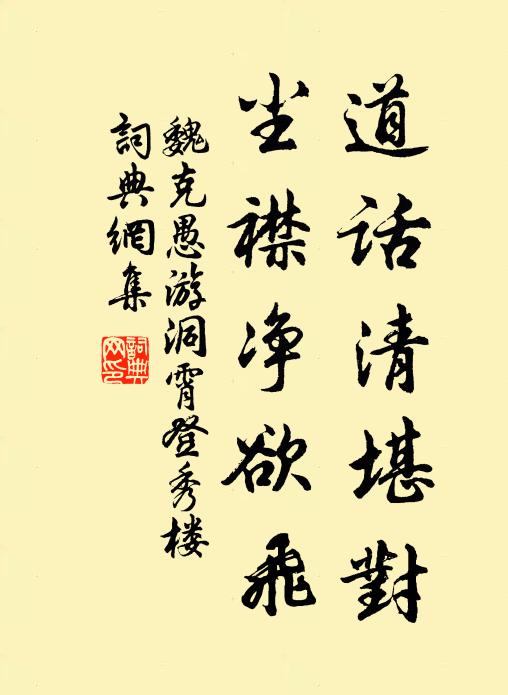 道话清堪對
尘襟净欲飛
魏克愚游洞霄登秀楼
詞典網集
詞典
网印